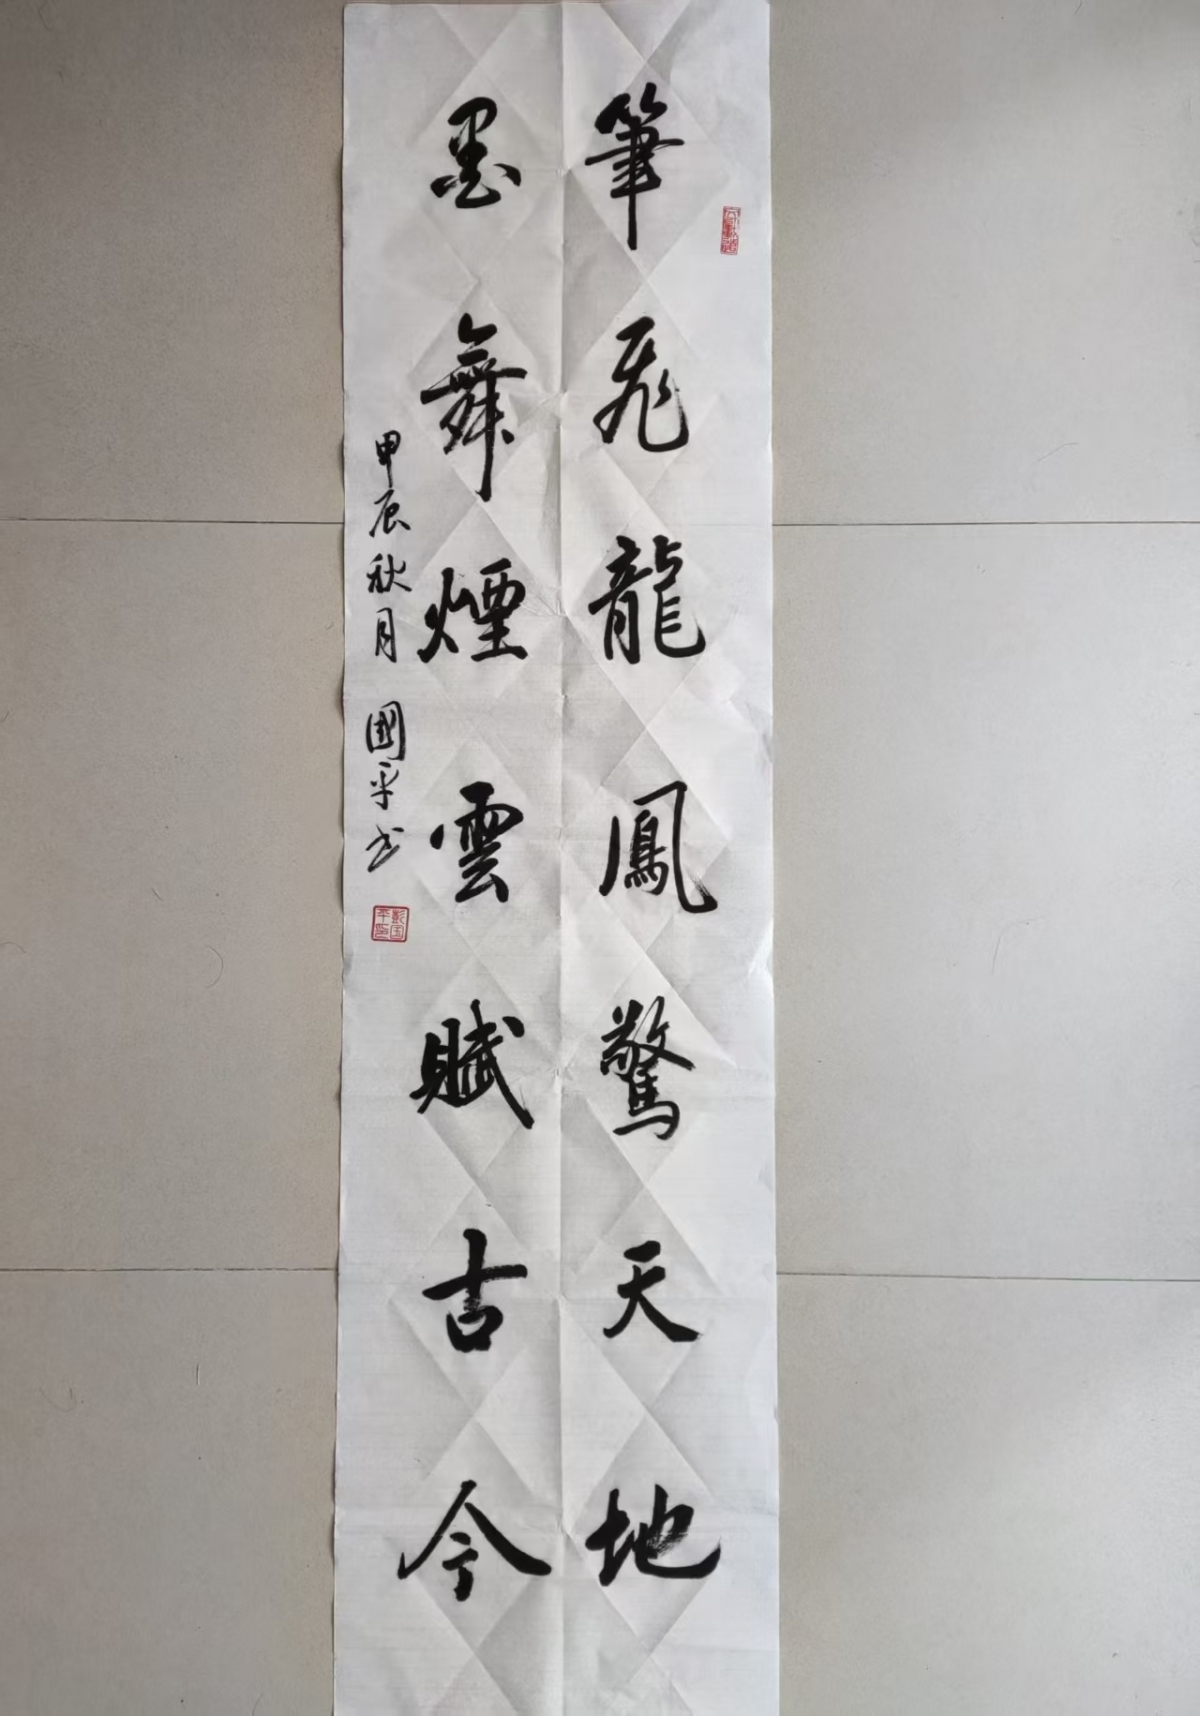 筆飛龍鳳驚天地
墨舞煙雲賦古今
甲辰秋月 國平书
彭国平印